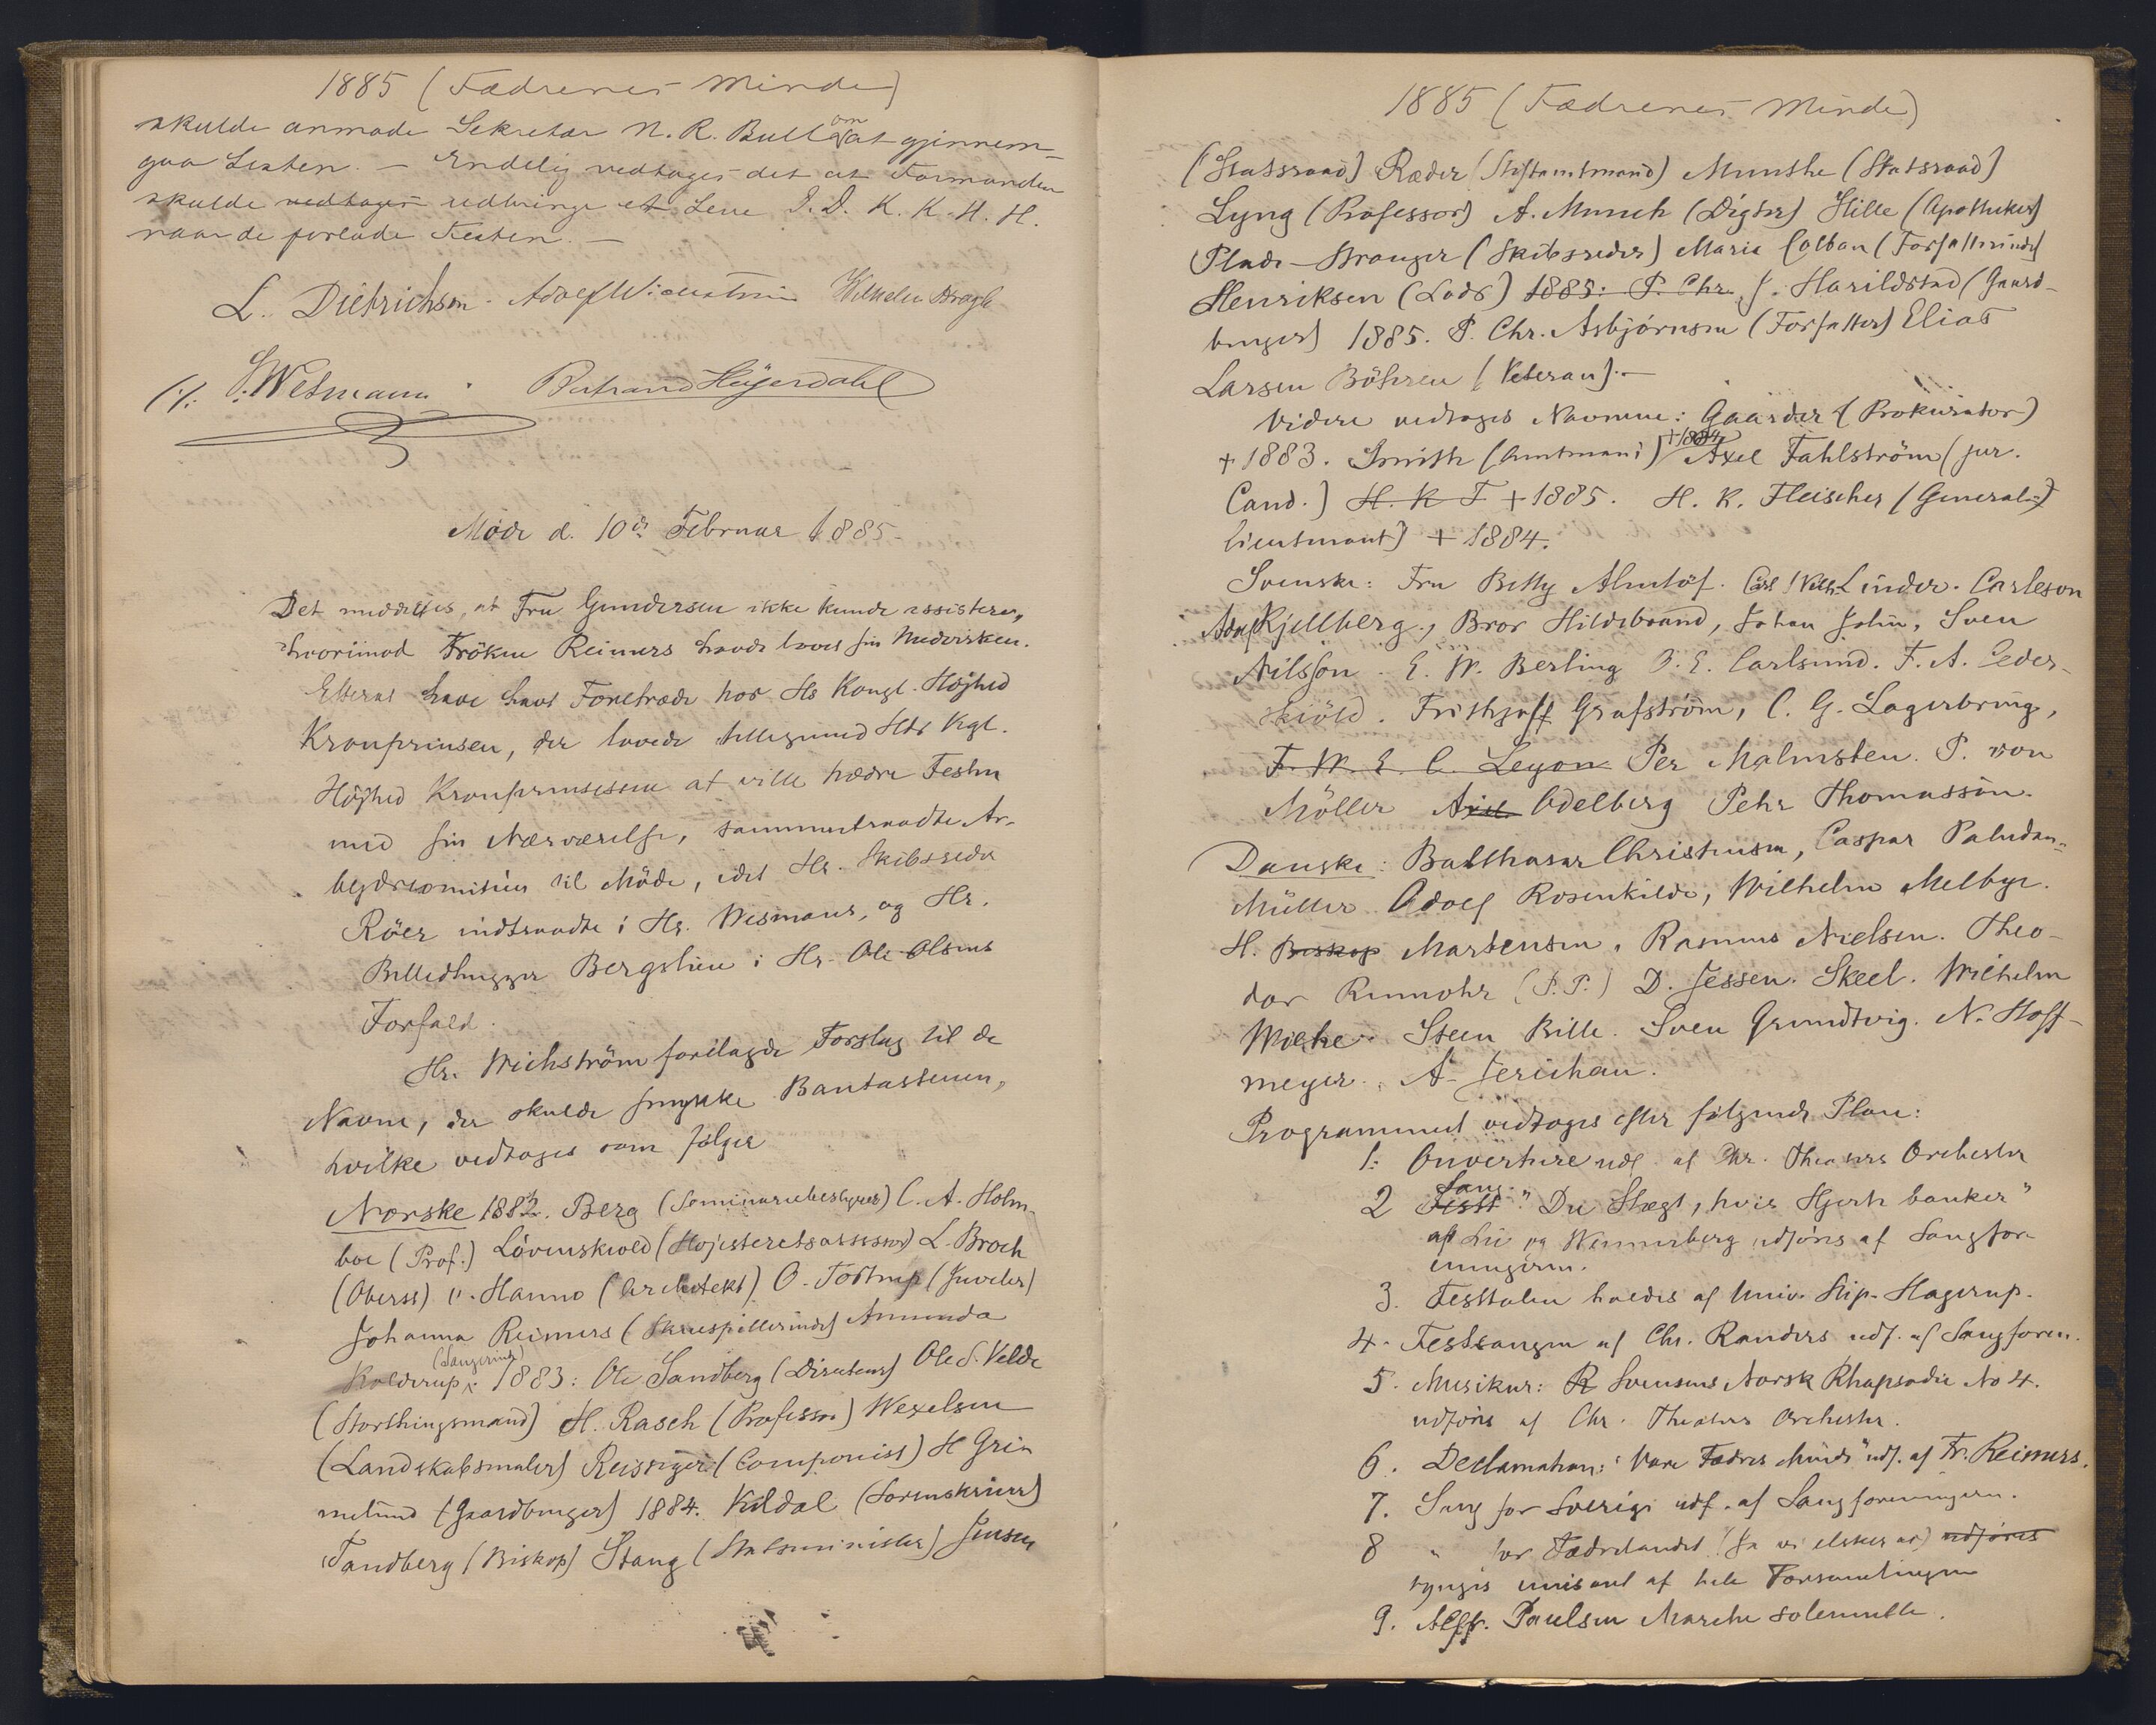 1885 (Fædrenes Minde)
skulde anmode Sekretær N. R. Bull om at gjennem-
gaa Listen. – Endelig vedtoges det at Formanden
skulde vedtoges udbringe et Leve D. D. K. K. H. H.
naar de forlade Festen. –
L. Dietrichson. Adolf Wilhelm
S. Wesmann. Bertrand Heyerdahl
Møde d. 10de Februar 1885.
Det meddeltes, at Fru Gundersen ikke kunde assistere,
hvorimod Frøken Reimers havde lovet sin Medvirken.
Efterat have havt Foretræde hos Hs Kongl. Højhed
Kronprinsen, der lovede tilligemed Hds Kgl.
Højhed Kronprinsessen at ville hædre Festen
med sin Nærværelse, sammentraadte Ar-
bejdscomiteen til Møde, idet Hr. Skibsreder
Röer indtraadte i Hr. Wesmans, og Hr.
Billedhugger Bergslien i Hr. Ole Olsens
Forfald.
Hr. Wichström forelagde Forslag til de
Navne, der skulde smykke Bautastenen,
hvilke vedtoges som følger
Norske 1882. Berg (Seminariebestyrer) C. A. Holm-
boe (Prof.) Lövenskiold (Højesteretsassessor) L. Broch
(Oberst) v. Hanno (Architekt) O. Tostrup (Juveler)
Johanna Reimers (Skuespillerinde) Amunda
Kolderup (Sangerinde) 1883: Ole Sandberg (Direktør) Ole S. Velde
(Storthingsmand) H. Rasch (Professor) Wexelsen
(Landskabsmaler) Reissiger (Componist) H Grim
melund (Gaardbruger) 1884. Kildal (Sorenskriver)
Tandberg (Biskop) Stang (Statsminister) Jensen
1885 (Fædrenes Minde)
(Statsraad) Ræder (Stiftamtmand) Munthe (Statsraad)
Lyng (Professor) A. Munch (Digter) Hille (Apotheker)
Plade – Stranger (Skibsreder) Marie Colban (Forfatterinde)
Henriksen (Lods) 1885: P. Chr. J. Harildstad (Gaard-
bruger) 1885. P. Chr. Asbjørnsen (Forfatter) Elias
Larsen Böhren (Veteran). –
Videre vedtoges Navnene: Gaarder (Prokurator)
+ 1883. Smith (Amtmand) + 1884 Axel Fahlström (jur.
Cand.) H. K F + 1885. H. K. Fleischer (General-
lieutnant) + 1884.
Svenske: Fru Betty Almlöf. Carl Wilh. Linder. Carleson
Adolf Kjellberg, Bror Hildebrand, Johan Jolin, Sven
Nilsson. E. W. Berling O. E. Carlsund. F. A. Ceder-
skiöld. Frithjoff Grafström, C. G. Lagerbring,
F. W. E. C. Leyon Per Malmsten. P. von
Möller Axel Odelberg Pehr Thomasson.
Danske: Balthasar Christensen, Caspar Paludan-
Müller Adolf Rosenkilde, Wilhelm Melbye.
H. Biskop Martensen. Rasmus Nielsen. Theo-
dor Rumohr (P. P.) D. Jessen. Skeel. Wilhelm
Wiehe. Steen Bille. Sven Grundtvig. N. Hoff-
meyer. A. Jerichau.
Programmet vedtoges efter følgende Plan:
1. Ouverture udf. af Chr. Theaters Orchester
2 Festt Sang "Du Slægt, hvis Hjerte banker"
af Lie og Wennerberg udføres af Sangfor-
eningern.
3. Festtalen holdes af Univ. Stip. Hagerup.
4. Festsangen af Chr. Randers udf. af Sangforen.
5. Musiknr: R Svensens Norsk Rhapsodie No 4.
udføres af Chr. Theaters Orchester.
6. Declamation: "Vore Fædres Minde" udf. af Fr. Reimers.
7. Sang for Sverige udf. af Sangforeningern.
8 " for Fædrelandet (Ja vi elsker ae) udføres
synges unisont af hele Forsamlingen
9. Alfr. Paulsen Marche solennelle.